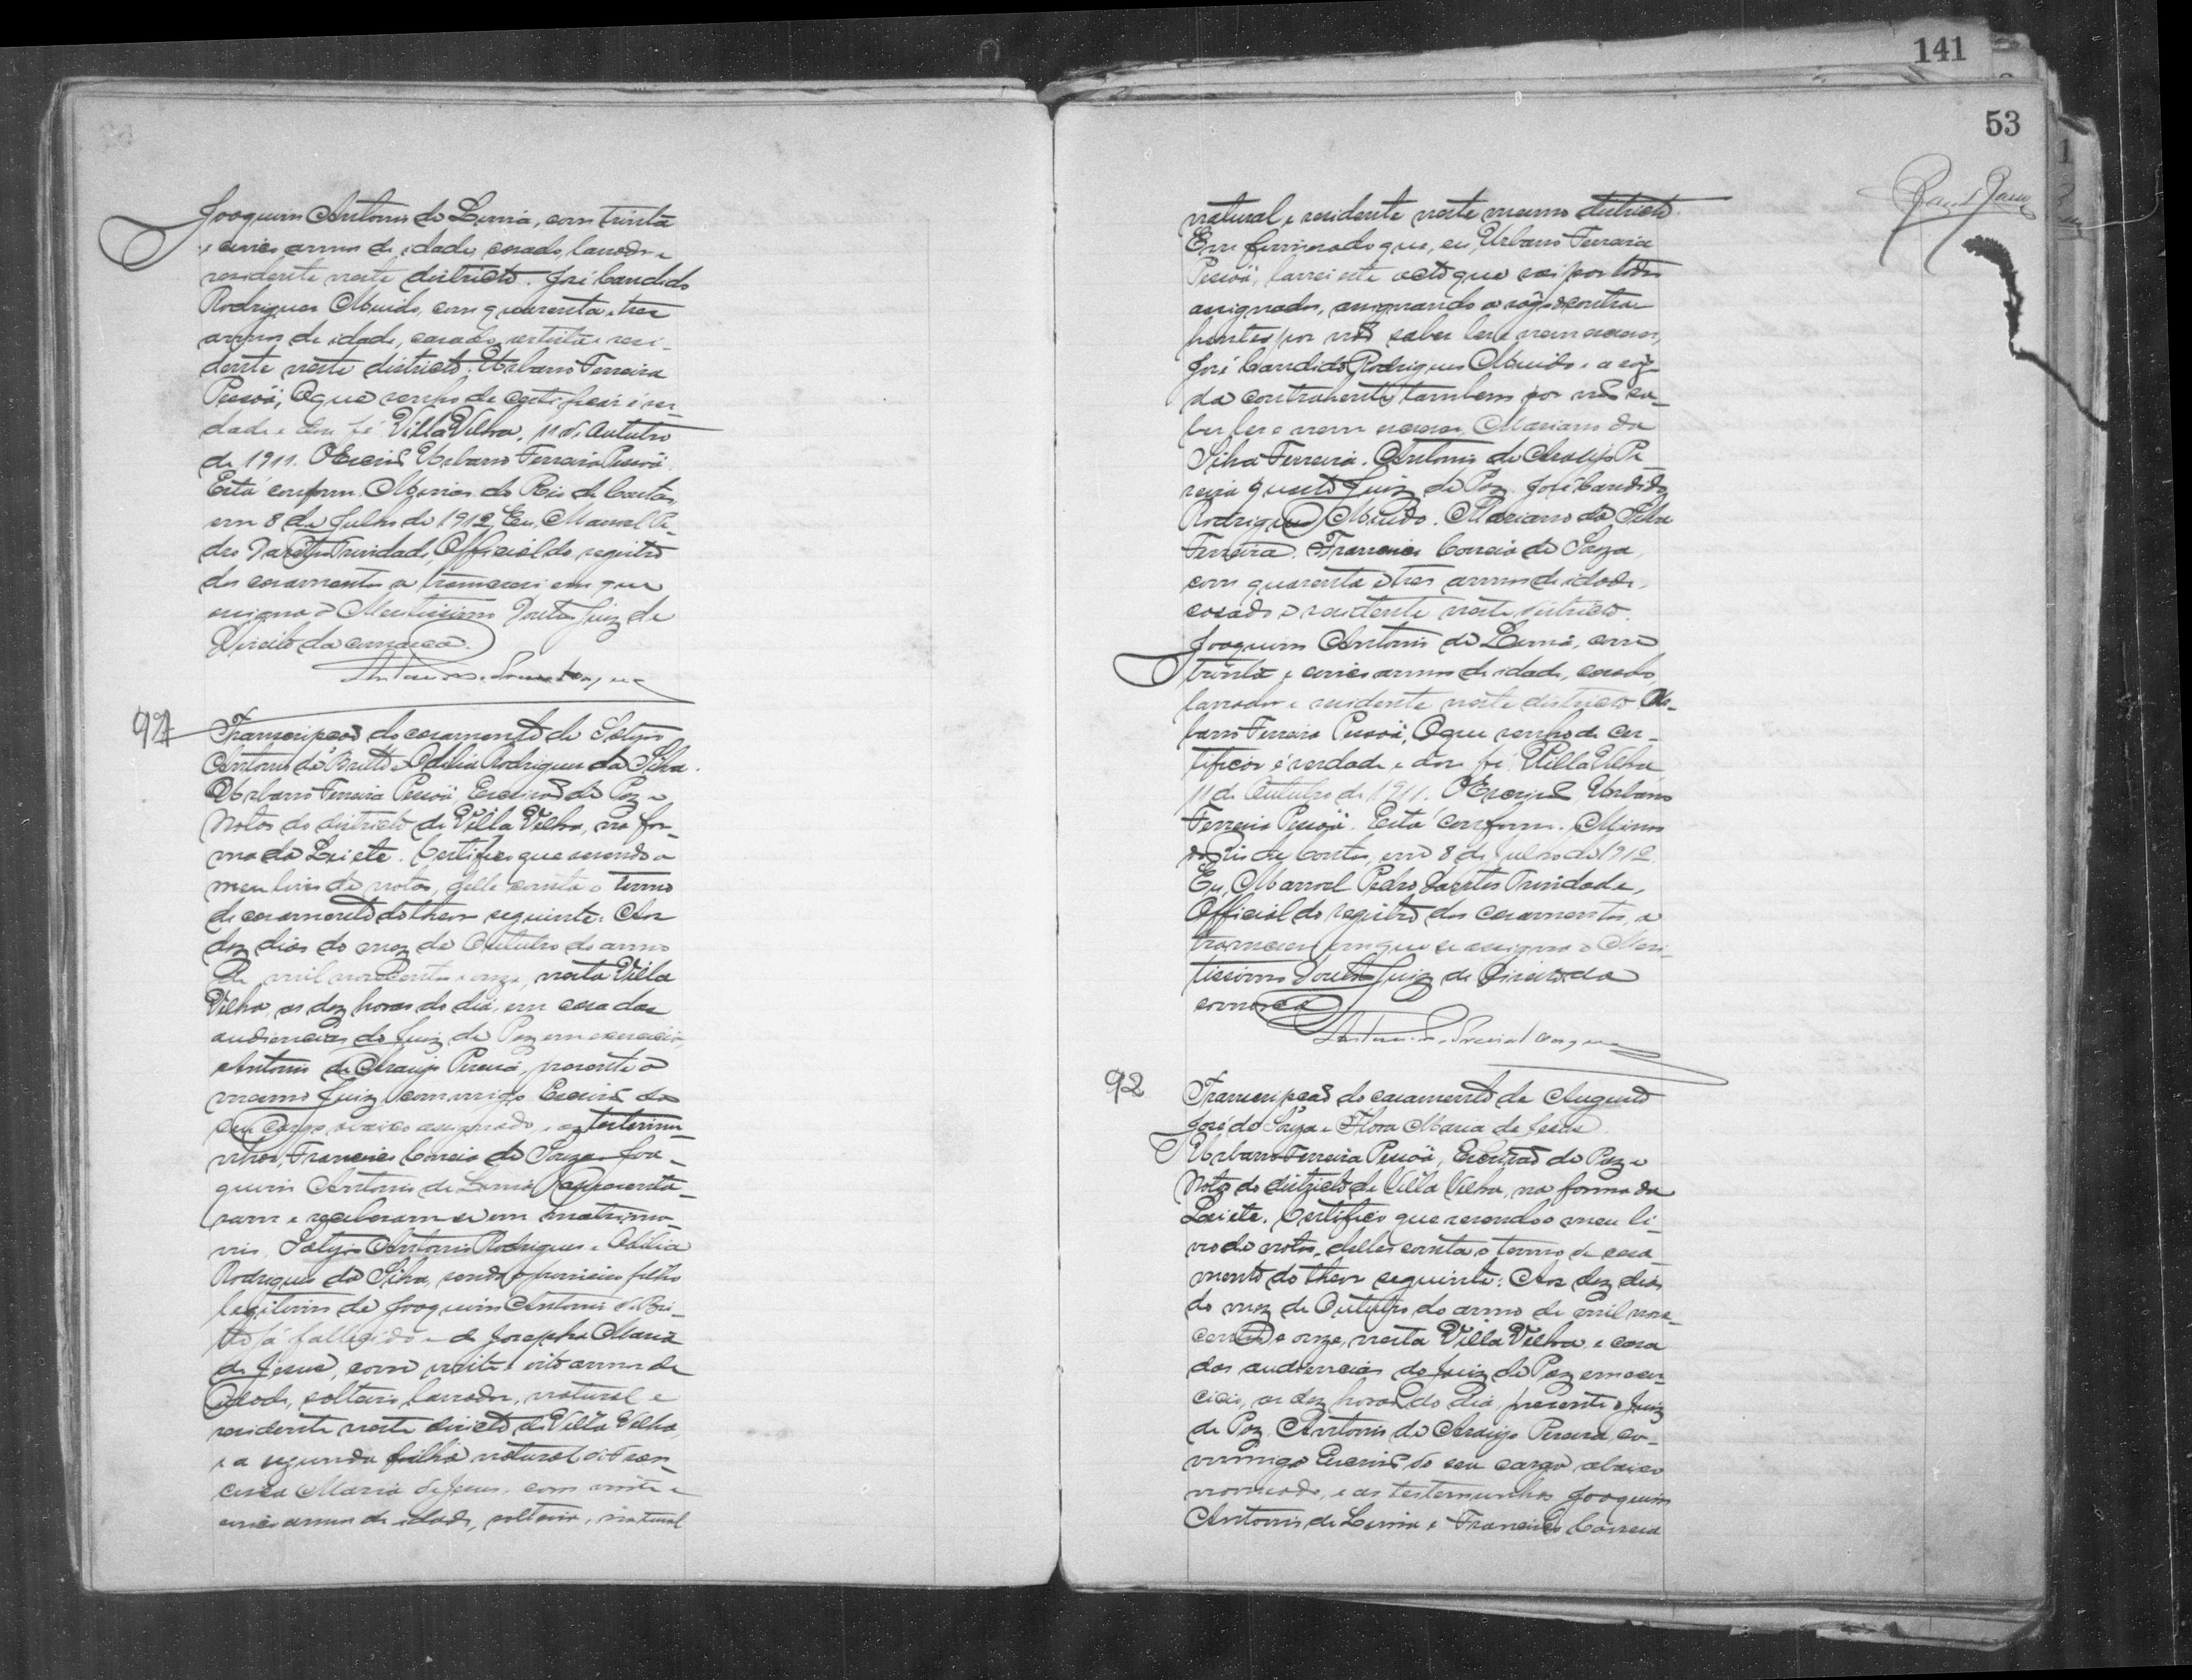 141
53
Joaquim Antonio de Lima, com trinta
e cinco annos de idade, casado, lavrador e
residente neste districto. José Candido
Rodrigues Abuido, com quarenta e tres
annos de idade, casado, artista e resi-
dente neste districto. Urbano Ferreira
Pessôa, O que venho de certificar é ver-
dade e dou fé. Villa Velha, 11 de Outubro
de 1911. O Escrivã Urbano Ferreira Pessôa.
Está conforme. Minas do Rio de Contas,
em 8 de Julho de 1912. Eu, Manoel Pe-
dro Trindade, Official do registro
dos casamentos a transcrevi em que
assigna o Meritissimo Doutor Juiz de
Direito da comarca.
91
Transcripção do casamento de
Antonio de Britto e Odilia Rodrigues da Silva.
Urbano Ferreira Pessôa, Escrivão de Paz e
Notas do districto de Villa Velha, na for-
ma da Lei etc. Certifico que revendo o
meu livro de notas, delle consta o termo
de casamento do theor seguinte: Aos
dez dias do mez de Outubro do anno
de mil novecentos e onze, nesta Villa
Velha, as dez horas do dia, em casa das
audiencias do Juiz de Paz em exercicio,
Antonio de Araujo Pereira, presente o
mesmo Juiz commigo Escrivã do
seu cargo, abaixo assignado, e as testemu-
nhas, Francisco Correia de Souza e Joa-
quim Antonio de Lima apresenta-
ram e receberam-se em matrimo-
nio, Antonio Rodrigues e Odilia
Rodrigues da Silva, sendo o primeiro filho
legitimo de Joaquim Antonio de Bri-
tto já fallecido e de Josepha Maria
de Jesus, com vinte e oito annos de
idade, solteiro, lavrador, natural e
residente neste districto de Villa Velha,
e a segunda filha natural de Fran-
cisca Maria de Jesus, com vinte e
cinco annos de idade, solteira, natural
natural e residente neste mesmo districto.
Em firmesa do que, eu, Urbano Ferreira
Pessôa, lavrei este acto que vai por todos
assignados, assignando a rôgo do contra-
hentes por não saber ler e nem escrever,
José Candido Rodrigues Abuido e a rôgo
da contrahente tambem por não sa-
ber ler e nem escrever, Mariano da
Silva Ferreira. Antonio de Araujo Pe-
reira quarto Juiz de Paz. José Candido
Rodrigues Abuido. Mariano da Silva
Ferreira. Francisco Correia de Souza,
com quarenta e tres annos de idade,
casado e residente neste districto.
Joaquim Antonio de Lima, com
trinta e cinco annos de idade, casado,
lavrador e residente neste districto. Ur-
bano Ferreira Pessôa. O que venho de cer-
tificar é verdade e dou fé. Villa Velha
11 de Outubro de 1911. O Escrivã Urbano
Ferreira Pessôa. Está conforme. Minas
do Rio de Contas, em 8 de Julho de 1912.
Eu, Manoel Pedro Trindade,
Official do registro dos casamentos, a
transcrevi em que se assigna o Meri-
tissimo Doutor Juiz de Direito da
comarca
92
Transcripção do casamento de Augusto
José de Souza e Flora Maria de Jesus.
Urbano Ferreira Pessôa, Escrivão de Paz e
Notas do districto de Villa Velha, na forma da
Lei etc. Certifico que revendo o meu li-
vro de notas, delles consta o termo de casa
mento do theor seguinte: Aos dez dias
do mez de Outubro do anno de mil nove-
centos e onze, nesta Villa Velha, e casa
das audiencias do Juiz de Paz em exer-
cicio, as dez horas do dia, presente o Juiz
de Paz Antonio de Araujo Pereira, co-
mmigo Escrivã do seu cargo abaixo
nomeado, e as testemunhas Joaquim
Antonio de Lima e Francisco Correia